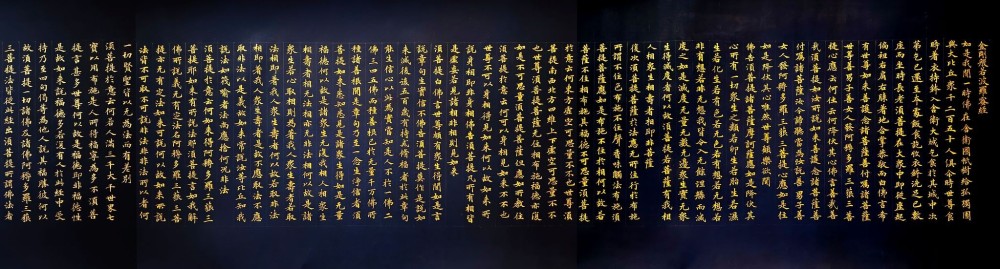 金剛般若波羅蜜經
如是我聞一時佛在舍衛國祇樹給孤獨園
與大比丘眾千二百五十人俱尒時世尊食
時著衣持鉢入舍衛大城乞食於其城中次
第乞已還至本處飯食訖收衣鉢洗足已敷
座而坐時長老須菩提在大眾中即從座起
偏袒右肩右膝著地合掌恭敬而白佛言希
有世尊如來善護念諸菩薩善付囑諸菩薩
世尊善男子善女人發阿耨多羅三藐三菩
提心應云何住云何降伏其心佛言善哉善
哉須菩提如汝所說如來善護念諸菩薩善
付囑諸菩薩汝今諦聽當為汝說善男子善
女人發阿耨多羅三藐三菩提心應如是住
如是降伏其心唯然世尊願樂欲聞
佛告須菩提諸菩薩摩訶薩應如是降伏其
心所有一切眾生之類若卵生若胎生若濕
生若化生若有色若无色若有想若无想若
非有想非无想我皆令入无餘涅槃而滅
度之如是滅度无量无數无邊眾生實无眾
生得滅度者何以故須菩提若菩薩有我相
人相眾生相壽者相即非菩薩
復次須菩提菩薩於法應无所住行於布施
所謂不住色布施不住聲香味觸法布施須
菩提菩薩應如是布施不住於相何以故若
菩薩不住相布施其福德不可思量須菩提
於意云何東方虛空可思量不不也世尊須
菩提南西北方四維上下虛空可思量不不
也世尊須菩提菩薩无住相布施福德亦復
如是不可思量須菩提菩薩但應如所教住
須菩提於意云何可以身相見如來不不也
世尊不可以身相得見如來何以故如來所
說身相即非身相佛告須菩提凡所有相皆
是虛妄若見諸相非相則見如來
須菩提白佛言世尊頗有眾生得聞如是言
說章句生實信不佛告須菩提莫作是說如
來滅後後五百歲有持戒修福者於此章句
能生信心以此為實當知是人不於一佛二
佛三四五佛而種善根已於无量千万佛所
種諸善根聞是章句乃至一念生淨信者須
菩提如來悉知悉見是諸眾生得如是无量
福德何以故是諸眾生无復我相人相眾生
相壽者相无法相亦无非法相何以故是諸
眾生若心取相則為著我人眾生壽者若取
法相即著我人眾生壽者何以故若取非法
相即著我人眾生壽者是故不應取法不應
取非法以是義故如來常說汝等比丘知我
說法如筏喻者法尚應捨何況非法
須菩提於意云何如來得阿耨多羅三藐三
菩提耶如來有所說法耶須菩提言如我解
佛所說義无有定法名阿耨多羅三藐三菩
提亦无有定法如來可說何以故如來所說
法皆不可取不可說非法非非法所以者何
一切賢聖皆以无為法而有差別
須菩提於意云何若人滿三千大千世界七
寶以用布施是人所得福德寧為多不須菩
提言甚多世尊何以故是福德即非福德性
是故如來說福德多若復有人於此經中受
持乃至四句偈等為他人說其福勝彼何以
故須菩提一切諸佛及諸佛阿耨多羅三藐
三菩提法皆從此經出須菩提所謂佛法者